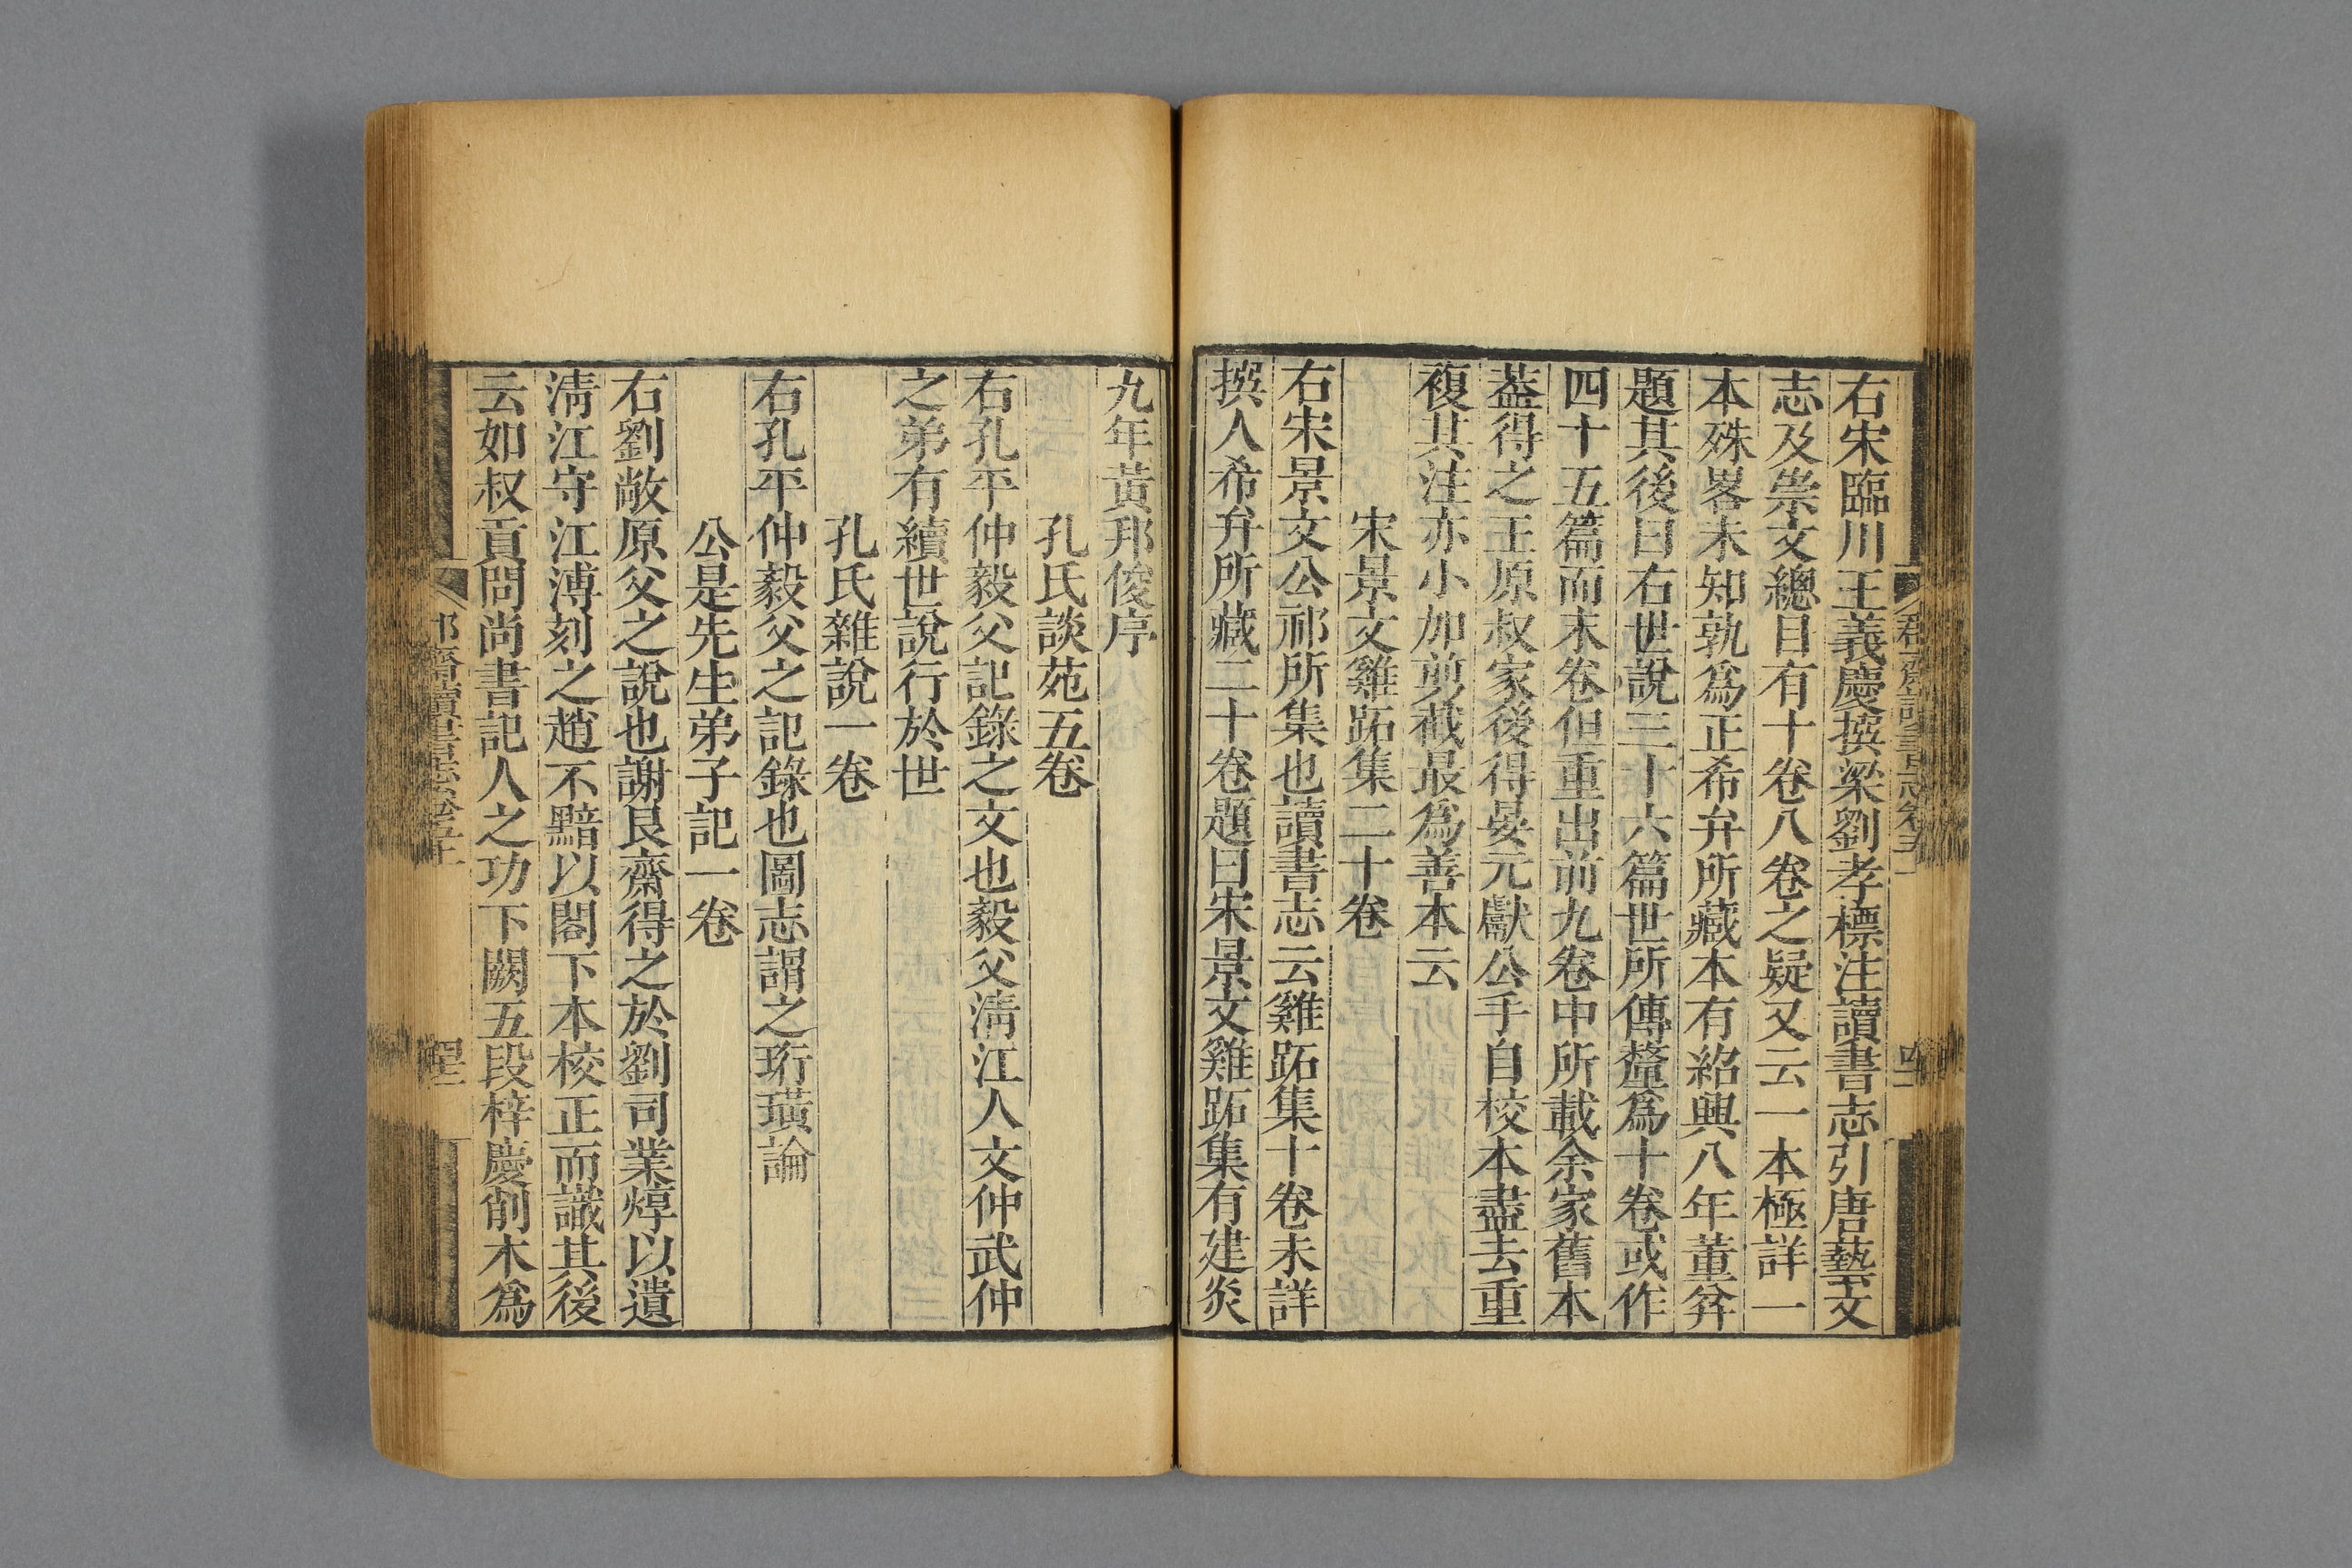 右宋臨川王義慶撰梁劉孝標注讀書志引唐藝文
志及崇文總目有十卷八卷之疑又云一本極詳一
本殊畧未知孰爲正希弁所藏本有紹興八年董弅
題其後曰右世說三十六篇世所傳釐爲十卷或作
四十五篇而末卷但重出前九卷中所載余家舊本
葢得之王原叔家後得晏元獻公手自校本盡去重
複其注亦小加剪截最爲善本云
宋景文雞跖集二十卷
右宋景文公祁所集也讀書志云雞跖集十卷未詳
撰人希弁所藏二十卷題曰宋景文雞跖集有建炎
九年黃邦俊序
孔氏談苑五卷
右孔平仲毅父記錄之文也毅父淸江人文仲武仲
之弟有續世說行於世
孔氏雜說一卷
右孔平仲毅父之記錄也圖志謂之珩璜論
公是先生弟子記一卷
右劉敞原父之說也謝艮齋得之於劉司業焞以遺
淸江守江溥刻之趙不黯以閣下本校正而識其後
云如叔貢問尚書記人之功下闕五段梓慶削木爲